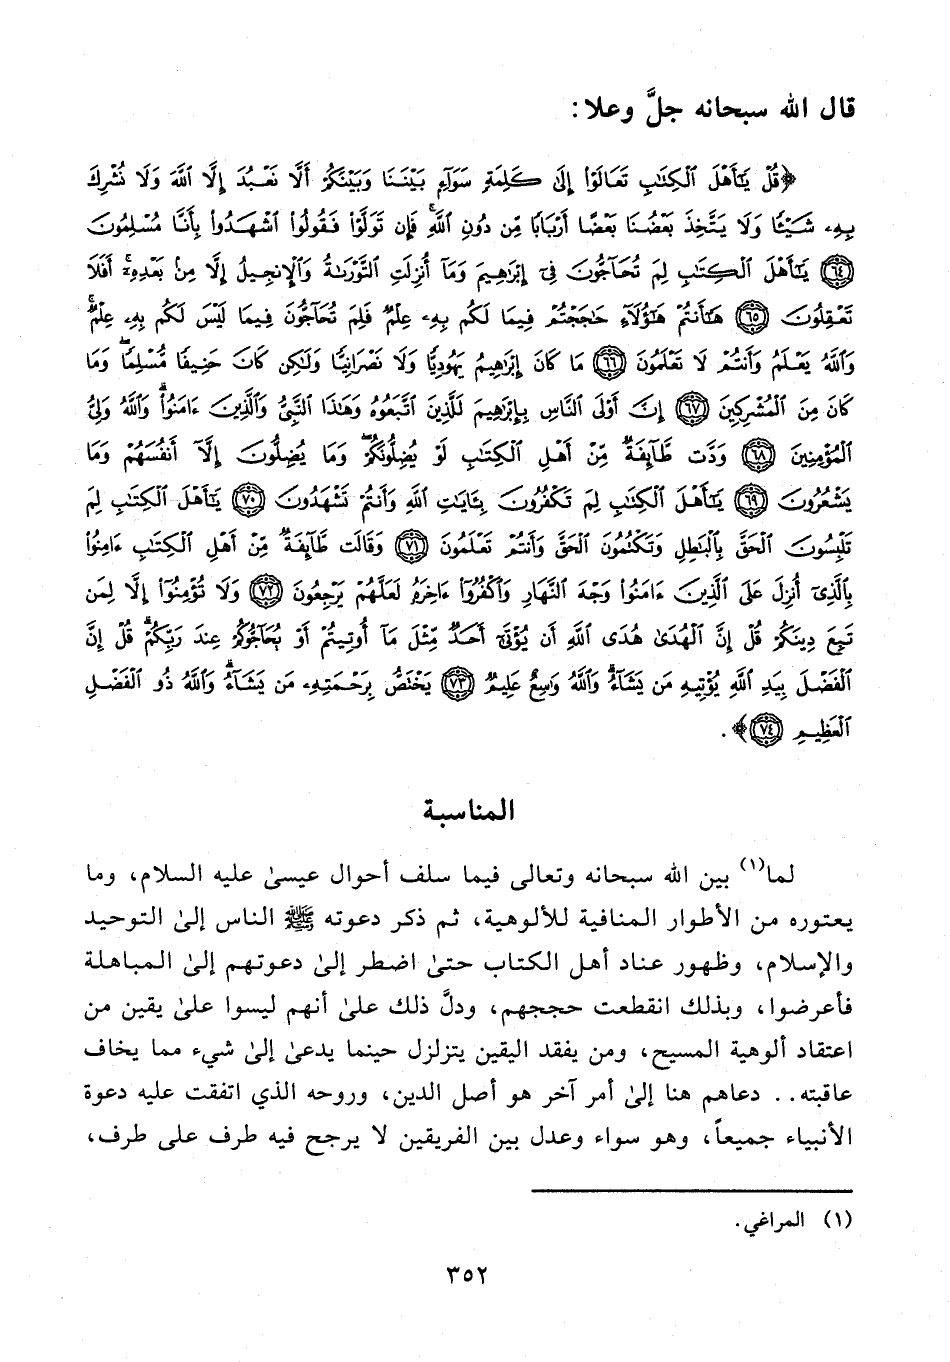 قال الله سبحانه جلَّ وعلا:
﴿قُلْ يَٰٓأَهْلَ ٱلْكِتَٰبِ تَعَالَوْا۟ إِلَىٰ كَلِمَةٍ سَوَآءٍۭ بَيْنَنَا وَبَيْنَكُمْ أَلَّا نَعْبُدَ إِلَّا ٱللَّهَ وَلَا نُشْرِكَ
بِهِۦ شَيْـًٔا وَلَا يَتَّخِذَ بَعْضُنَا بَعْضًا أَرْبَابًا مِّن دُونِ ٱللَّهِ ۚ فَإِن تَوَلَّوْا۟ فَقُولُوا۟ ٱشْهَدُوا۟ بِأَنَّا مُسْلِمُونَ
﴿٦٤﴾ يَٰٓأَهْلَ ٱلْكِتَٰبِ لِمَ تُحَآجُّونَ فِىٓ إِبْرَٰهِيمَ وَمَآ أُنزِلَتِ ٱلتَّوْرَىٰةُ وَٱلْإِنجِيلُ إِلَّا مِنۢ بَعْدِهِۦٓ ۚ أَفَلَا
تَعْقِلُونَ ﴿٦٥﴾ هَٰٓأَنتُمْ هَٰٓؤُلَآءِ حَٰجَجْتُمْ فِيمَا لَكُم بِهِۦ عِلْمٌ فَلِمَ تُحَآجُّونَ فِيمَا لَيْسَ لَكُم بِهِۦ عِلْمٌ ۚ
وَٱللَّهُ يَعْلَمُ وَأَنتُمْ لَا تَعْلَمُونَ ﴿٦٦﴾ مَا كَانَ إِبْرَٰهِيمُ يَهُودِيًّا وَلَا نَصْرَانِيًّا وَلَٰكِن كَانَ حَنِيفًا مُّسْلِمًا ۖ وَمَا
كَانَ مِنَ ٱلْمُشْرِكِينَ ﴿٦٧﴾ إِنَّ أَوْلَى ٱلنَّاسِ بِإِبْرَٰهِيمَ لَلَّذِينَ ٱتَّبَعُوهُ وَهَٰذَا ٱلنَّبِىُّ وَٱلَّذِينَ ءَامَنُوا۟ ۗ وَٱللَّهُ وَلِىُّ
ٱلْمُؤْمِنِينَ ﴿٦٨﴾ وَدَّت طَّآئِفَةٌ مِّنْ أَهْلِ ٱلْكِتَٰبِ لَوْ يُضِلُّونَكُمْ ۖ وَمَا يُضِلُّونَ إِلَّآ أَنفُسَهُمْ وَمَا
يَشْعُرُونَ ﴿٦٩﴾ يَٰٓأَهْلَ ٱلْكِتَٰبِ لِمَ تَكْفُرُونَ بِـَٔايَٰتِ ٱللَّهِ وَأَنتُمْ تَشْهَدُونَ ﴿٧٠﴾ يَٰٓأَهْلَ ٱلْكِتَٰبِ لِمَ
تَلْبِسُونَ ٱلْحَقَّ بِٱلْبَٰطِلِ وَتَكْتُمُونَ ٱلْحَقَّ وَأَنتُمْ تَعْلَمُونَ ﴿٧١﴾ وَقَالَت طَّآئِفَةٌ مِّنْ أَهْلِ ٱلْكِتَٰبِ ءَامِنُوا۟
بِٱلَّذِىٓ أُنزِلَ عَلَى ٱلَّذِينَ ءَامَنُوا۟ وَجْهَ ٱلنَّهَارِ وَٱكْفُرُوٓا۟ ءَاخِرَهُۥ لَعَلَّهُمْ يَرْجِعُونَ ﴿٧٢﴾ وَلَا تُؤْمِنُوٓا۟ إِلَّا لِمَن
تَبِعَ دِينَكُمْ قُلْ إِنَّ ٱلْهُدَىٰ هُدَى ٱللَّهِ أَن يُؤْتَىٰٓ أَحَدٌ مِّثْلَ مَآ أُوتِيتُمْ أَوْ يُحَآجُّوكُمْ عِندَ رَبِّكُمْ ۗ قُلْ إِنَّ
ٱلْفَضْلَ بِيَدِ ٱللَّهِ يُؤْتِيهِ مَن يَشَآءُ ۗ وَٱللَّهُ وَٰسِعٌ عَلِيمٌ ﴿٧٣﴾ يَخْتَصُّ بِرَحْمَتِهِۦ مَن يَشَآءُ ۗ وَٱللَّهُ ذُو ٱلْفَضْلِ
ٱلْعَظِيمِ ﴿٧٤﴾﴾.
المناسبة
لما(١) بين الله سبحانه وتعالى فيما سلف أحوال عيسىٰ عليه السلام، وما
يعتوره من الأطوار المنافية للألوهية، ثم ذكر دعوته ﷺ الناس إلىٰ التوحيد
والإسلام، وظهور عناد أهل الكتاب حتىٰ اضطر إلىٰ دعوتهم إلىٰ المباهلة
فأعرضوا، وبذلك انقطعت حججهم، ودلَّ ذلك علىٰ أنهم ليسوا علىٰ يقين من
اعتقاد ألوهية المسيح، ومن يفقد اليقين يتزلزل حينما يدعىٰ إلىٰ شيء مما يخاف
عاقبته.. دعاهم هنا إلىٰ أمر آخر هو أصل الدين، وروحه الذي اتفقت عليه دعوة
الأنبياء جميعاً، وهو سواء وعدل بين الفريقين لا يرجح فيه طرف على طرف،
(١) المراغي.
٣٥٢